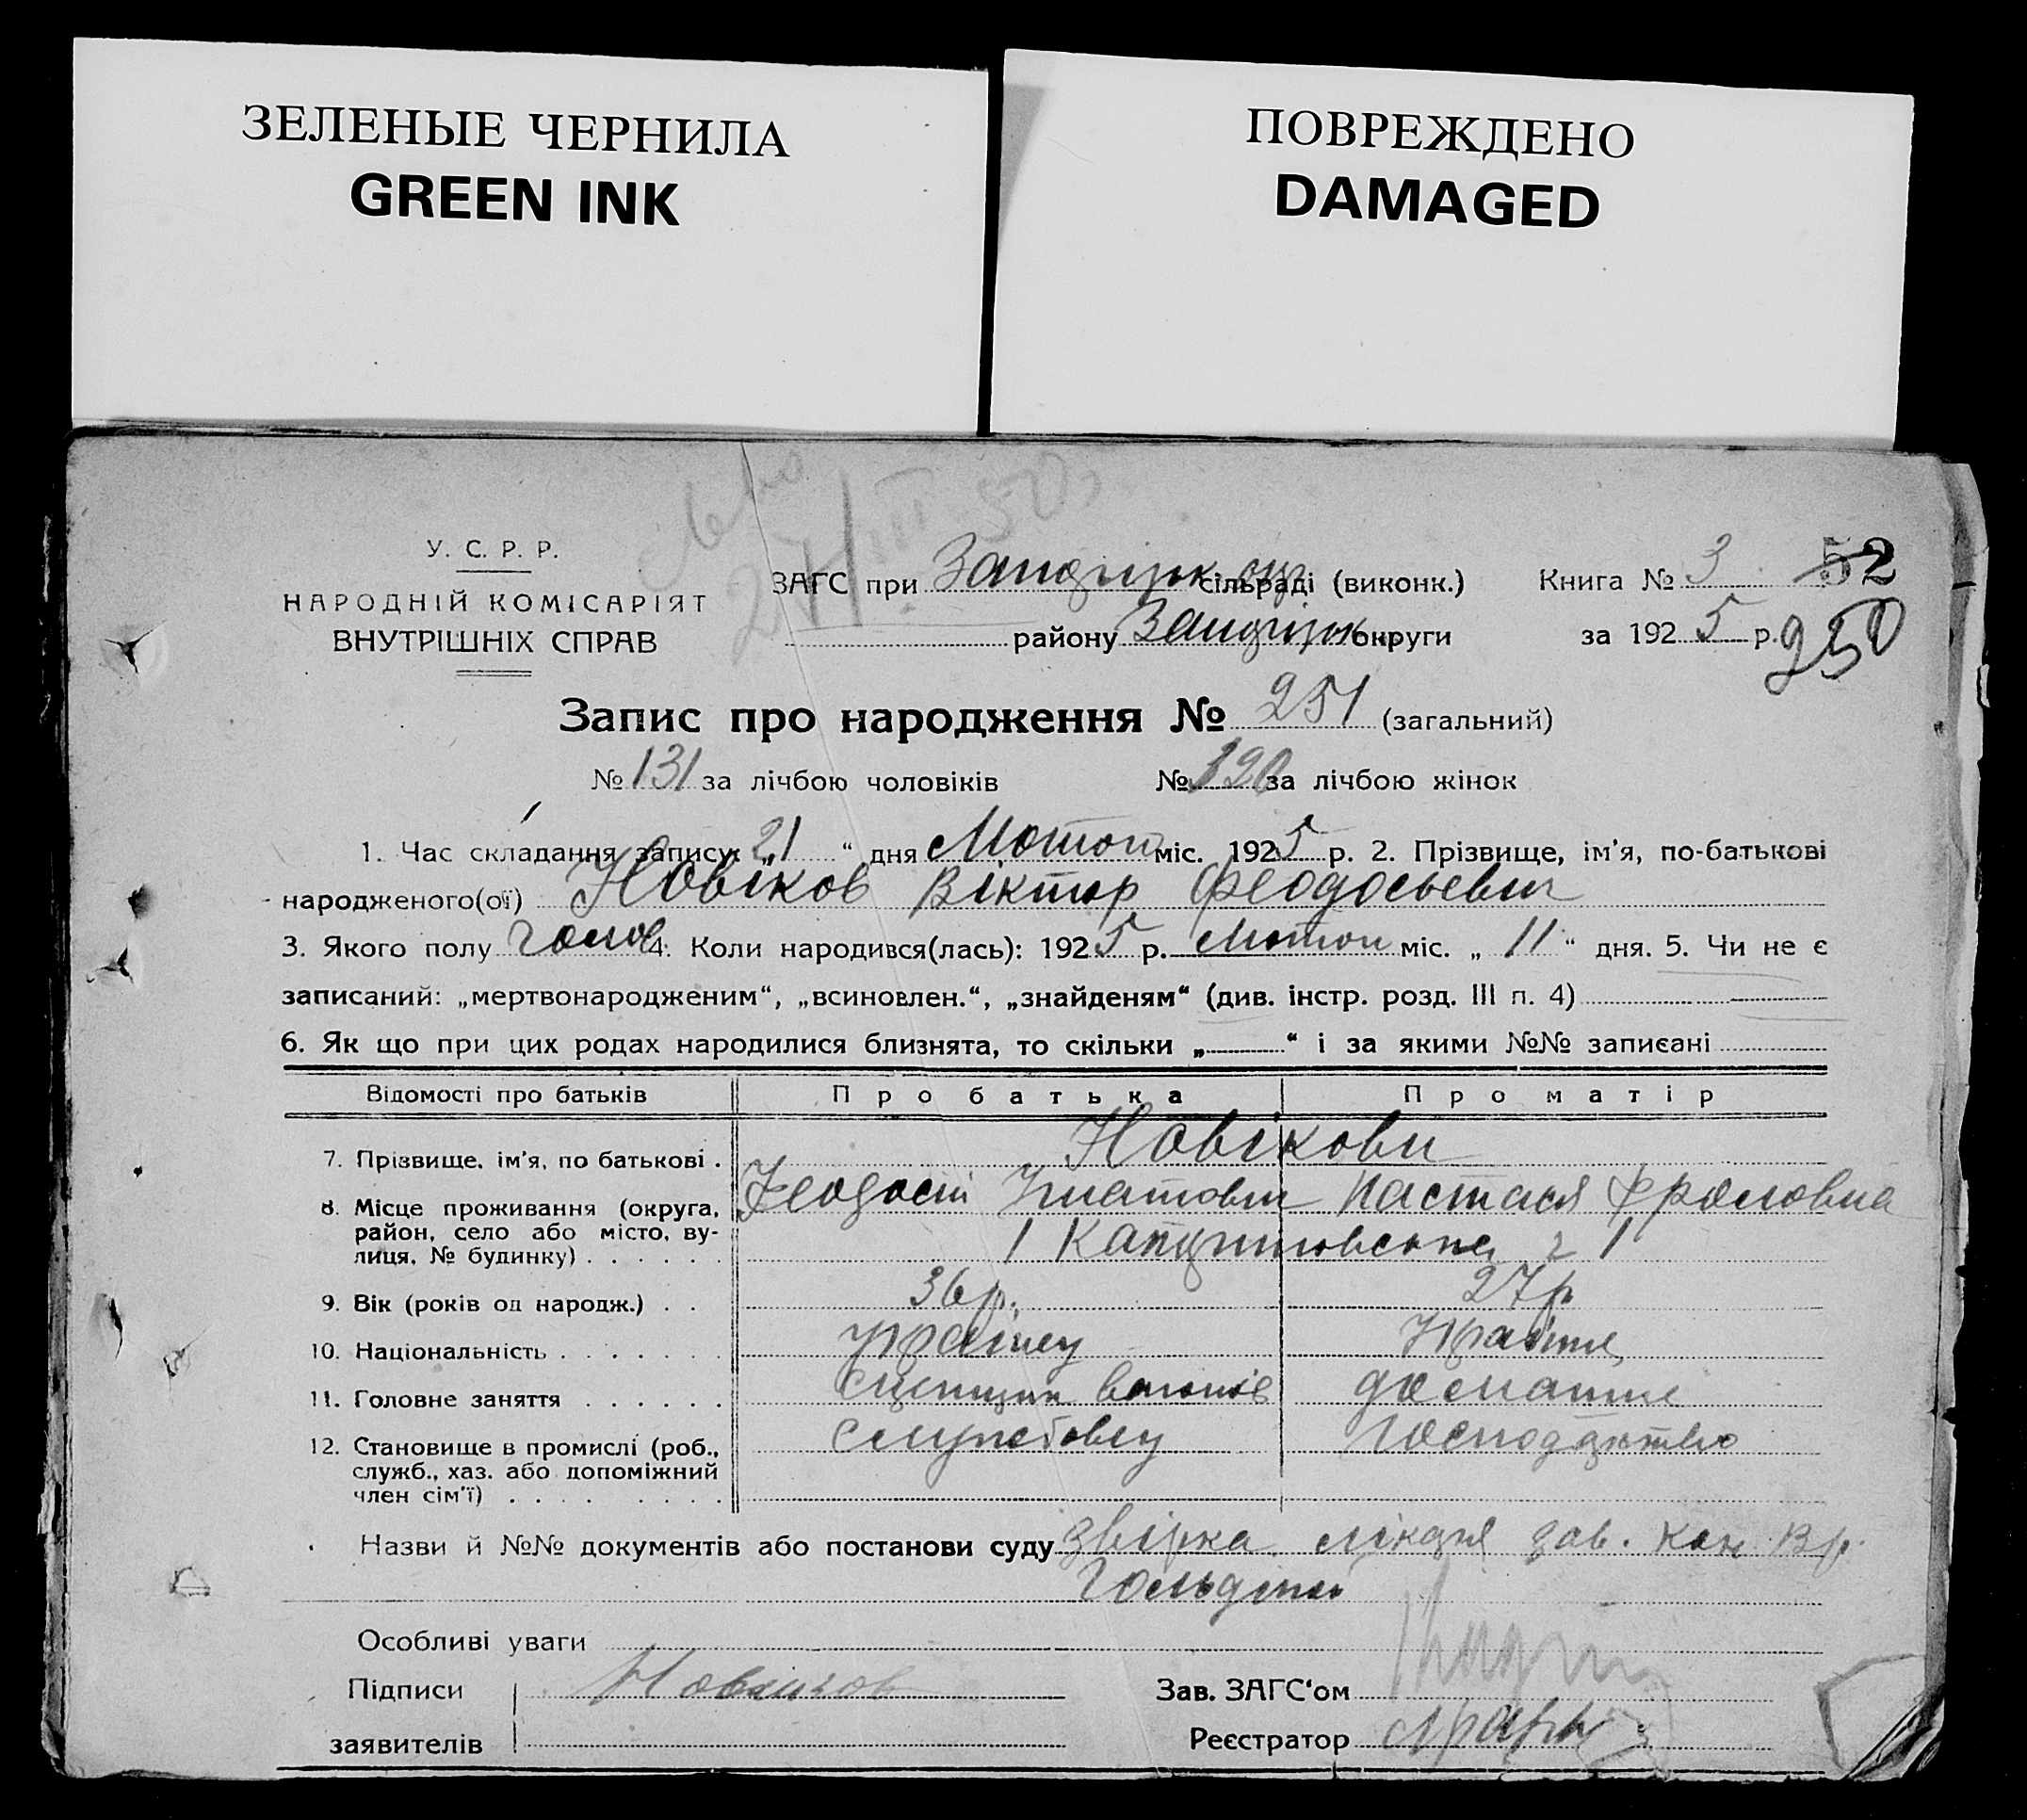 ЗЕЛЕНЫЕ ЧЕРНИЛА
GREEN INK
ПОВРЕЖДЕНО
DAMAGED
У. С. Р. Р.
НАРОДНІЙ КОМІСАРІЯТ
ВНУТРІШНІХ СПРАВ
ЗАГС при сільраді (виконк.)
району округи
Книга № 3 52
за 1925 р. 250
Запис про народження № 251 (загальний)
№ 131 за лічбою чоловіків № 120 за лічбою жінок
1. Час складання запису: „21“ дня Лютого міс. 1925 р. 2. Прізвище, ім'я, по-батькові
народженого(ої) Новіков Віктор Феодосьевич
3. Якого полу чолов 4. Коли народився(лась): 1925 р. Лютого міс. „11“ дня. 5. Чи не є
записаний: „мертвонародженим“, „всиновлен.“, „знайденям“ (див. інстр. розд. III п. 4)
6. Як що при цих родах народилися близнята, то скільки „ “ і за якими №№ записані
Відомості про батьків Про батька Про матір
7. Прізвище, ім'я, по батькові . Новікови
Феодосій Ігнатович Настася Фроловна
8. Місце проживання (округа,
район, село або місто, ву-
лиця, № будинку) . . . . . .
9. Вік (років од народж.) . . 36 р. 27 р
10. Національність . . . . . . . Українец Україн.
11. Головне заняття . . . . . . сцепщик вагонів домашне
12. Становище в промислі (роб., службовец господарство
служб., хаз. або допоміжний
член сім'ї) . . . . . . . .
Назви й №№ документів або постанови суду лікаря
Особливі уваги
Підписи Новіков Зав. ЗАГС'ом
заявителів Реєстратор